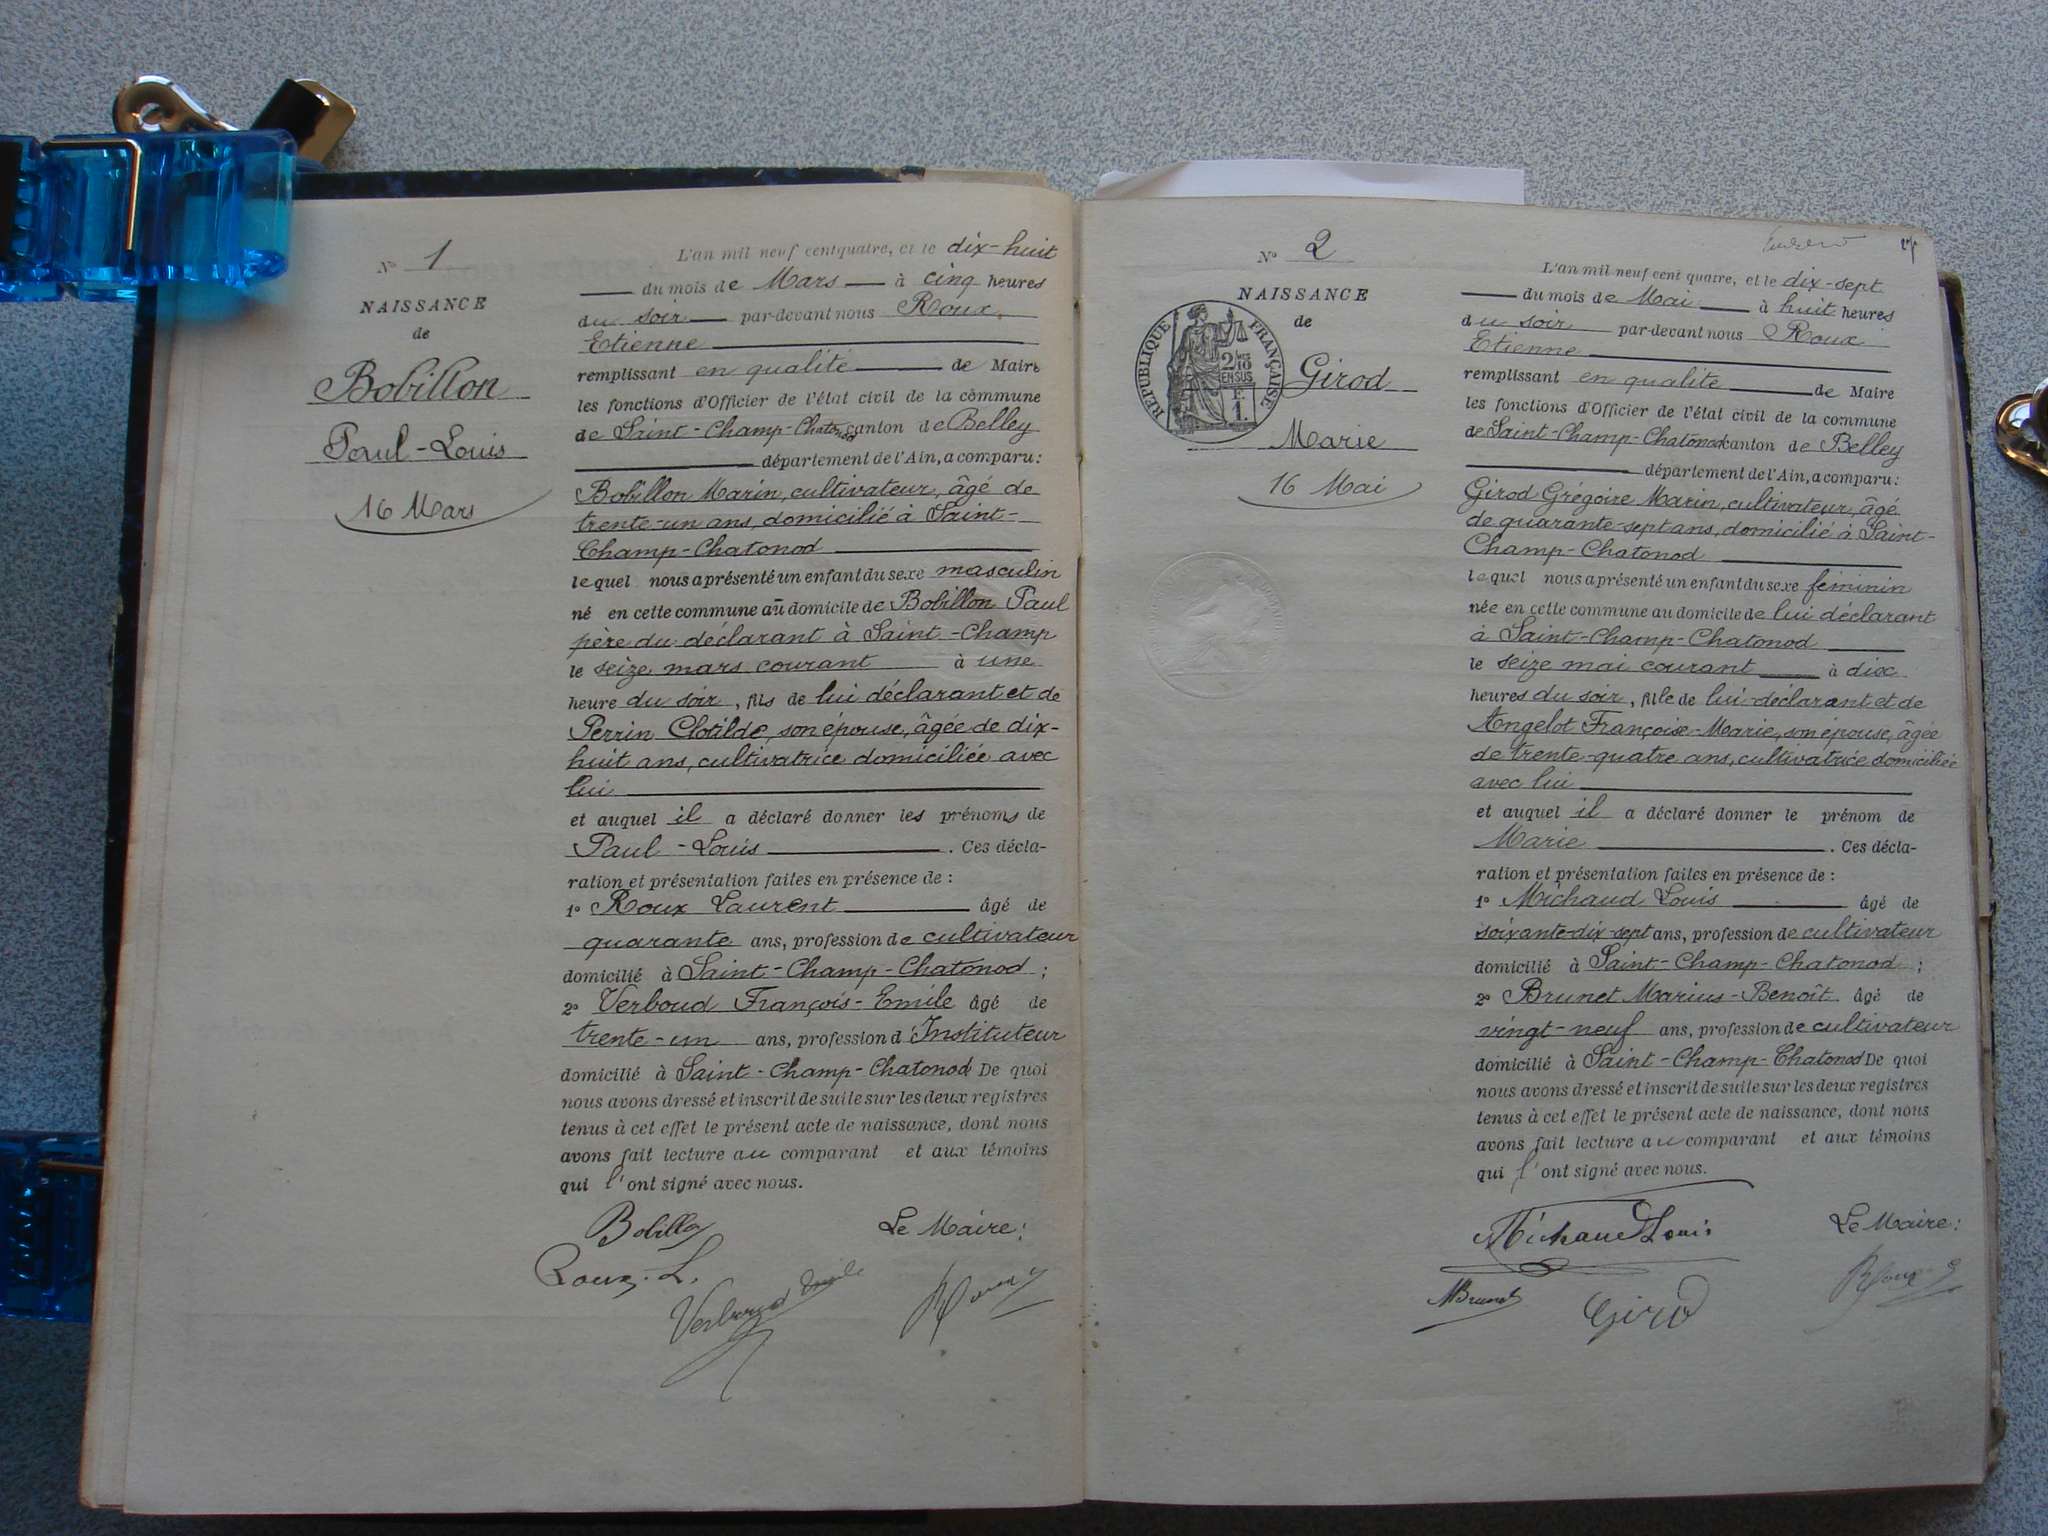 N° 1
NAISSANCE
de
Bobillon
Paul-Louis
16 Mars
L'an mil neuf cent quatre, et le dix-huit
du mois de Mars à cinq heures
du soir par-devant nous Roux
Etienne
remplissant en qualité de Maire
les fonctions d'Officier de l'état civil de la commune
de Saint-Champ-Chatonod canton de Belley
département de l'Ain, a comparu:
Bobillon Marin, cultivateur, âgé de
trente-un ans, domicilié à Saint-
Champ-Chatonod
lequel nous a présenté un enfant du sexe masculin
né en cette commune au domicile de Bobillon Paul
père du déclarant à Saint-Champ
le seize mars courant à une
heure du soir, fils de lui déclarant et de
Perrin Clotilde, son épouse, âgée de dix-
huit ans, cultivatrice domiciliée avec
lui
et auquel il a déclaré donner les prénoms de
Paul-Louis. Ces décla-
ration et présentation faites en présence de :
1° Roux Laurent âgé de
quarante ans, profession de cultivateur
domicilié à Saint-Champ-Chatonod ;
2° Verboud François-Emile âgé de
trente-un ans, profession d'Instituteur
domicilié à Saint-Champ-Chatonod De quoi
nous avons dressé et inscrit de suite sur les deux registres
tenus à cet effet le présent acte de naissance, dont nous
avons fait lecture au comparant et aux témoins
qui l'ont signé avec nous.
Bobillon Le Maire:
Roux. L.
Verboud Emile Roux
N° 2
NAISSANCE
de
RÉPUBLIQUE FRANÇAISE
2/10
EN SUS
F.
1.
Girod
Marie
16 Mai
L'an mil neuf cent quatre, et le dix-sept
du mois de Mai à huit heures
du soir par-devant nous Roux
Etienne
remplissant en qualité de Maire
les fonctions d'Officier de l'état civil de la commune
de Saint-Champ-Chatonod canton de Belley
département de l'Ain, a comparu:
Girod Grégoire Marin, cultivateur, âgé
de quarante-sept ans, domicilié à Saint-
Champ-Chatonod
lequel nous a présenté un enfant du sexe féminin
née en cette commune au domicile de lui déclarant
à Saint-Champ-Chatonod
le seize mai courant à dix
heures du soir, fille de lui déclarant et de
Angelot Françoise-Marie, son épouse, âgée
de trente-quatre ans, cultivatrice domiciliée
avec lui
et auquel il a déclaré donner le prénom de
Marie. Ces décla-
ration et présentation faites en présence de :
1° Michaud Louis âgé de
soixante-dix-sept ans, profession de cultivateur
domicilié à Saint-Champ-Chatonod ;
2° Brunet Marius-Benoît âgé de
vingt-neuf ans, profession de cultivateur
domicilié à Saint-Champ-Chatonod De quoi
nous avons dressé et inscrit de suite sur les deux registres
tenus à cet effet le présent acte de naissance, dont nous
avons fait lecture au comparant et aux témoins
qui l'ont signé avec nous.
Michaud Louis Le Maire:
MBrunet Girod Roux E